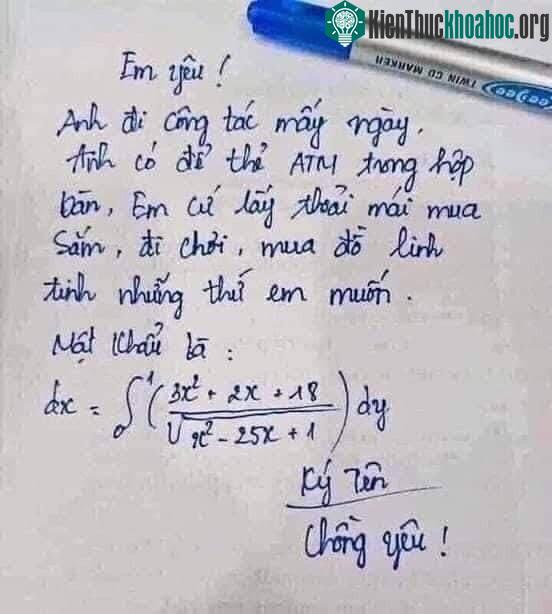 KienThuckhoahoc.org
TWIN CD MARKER
Em yêu !
Anh đi công tác mấy ngày.
Anh có để thẻ ATM trong hộp
bàn, Em cứ lấy thoải mái mua
Sắm, đi chơi, mua đồ linh
tinh những thứ em muốn.
Mật khẩu là :
dx = ∫₀¹ ( (3x² + 2x + 18) / √(x² - 25x + 1) ) dy
Ký Tên
Chồng yêu !